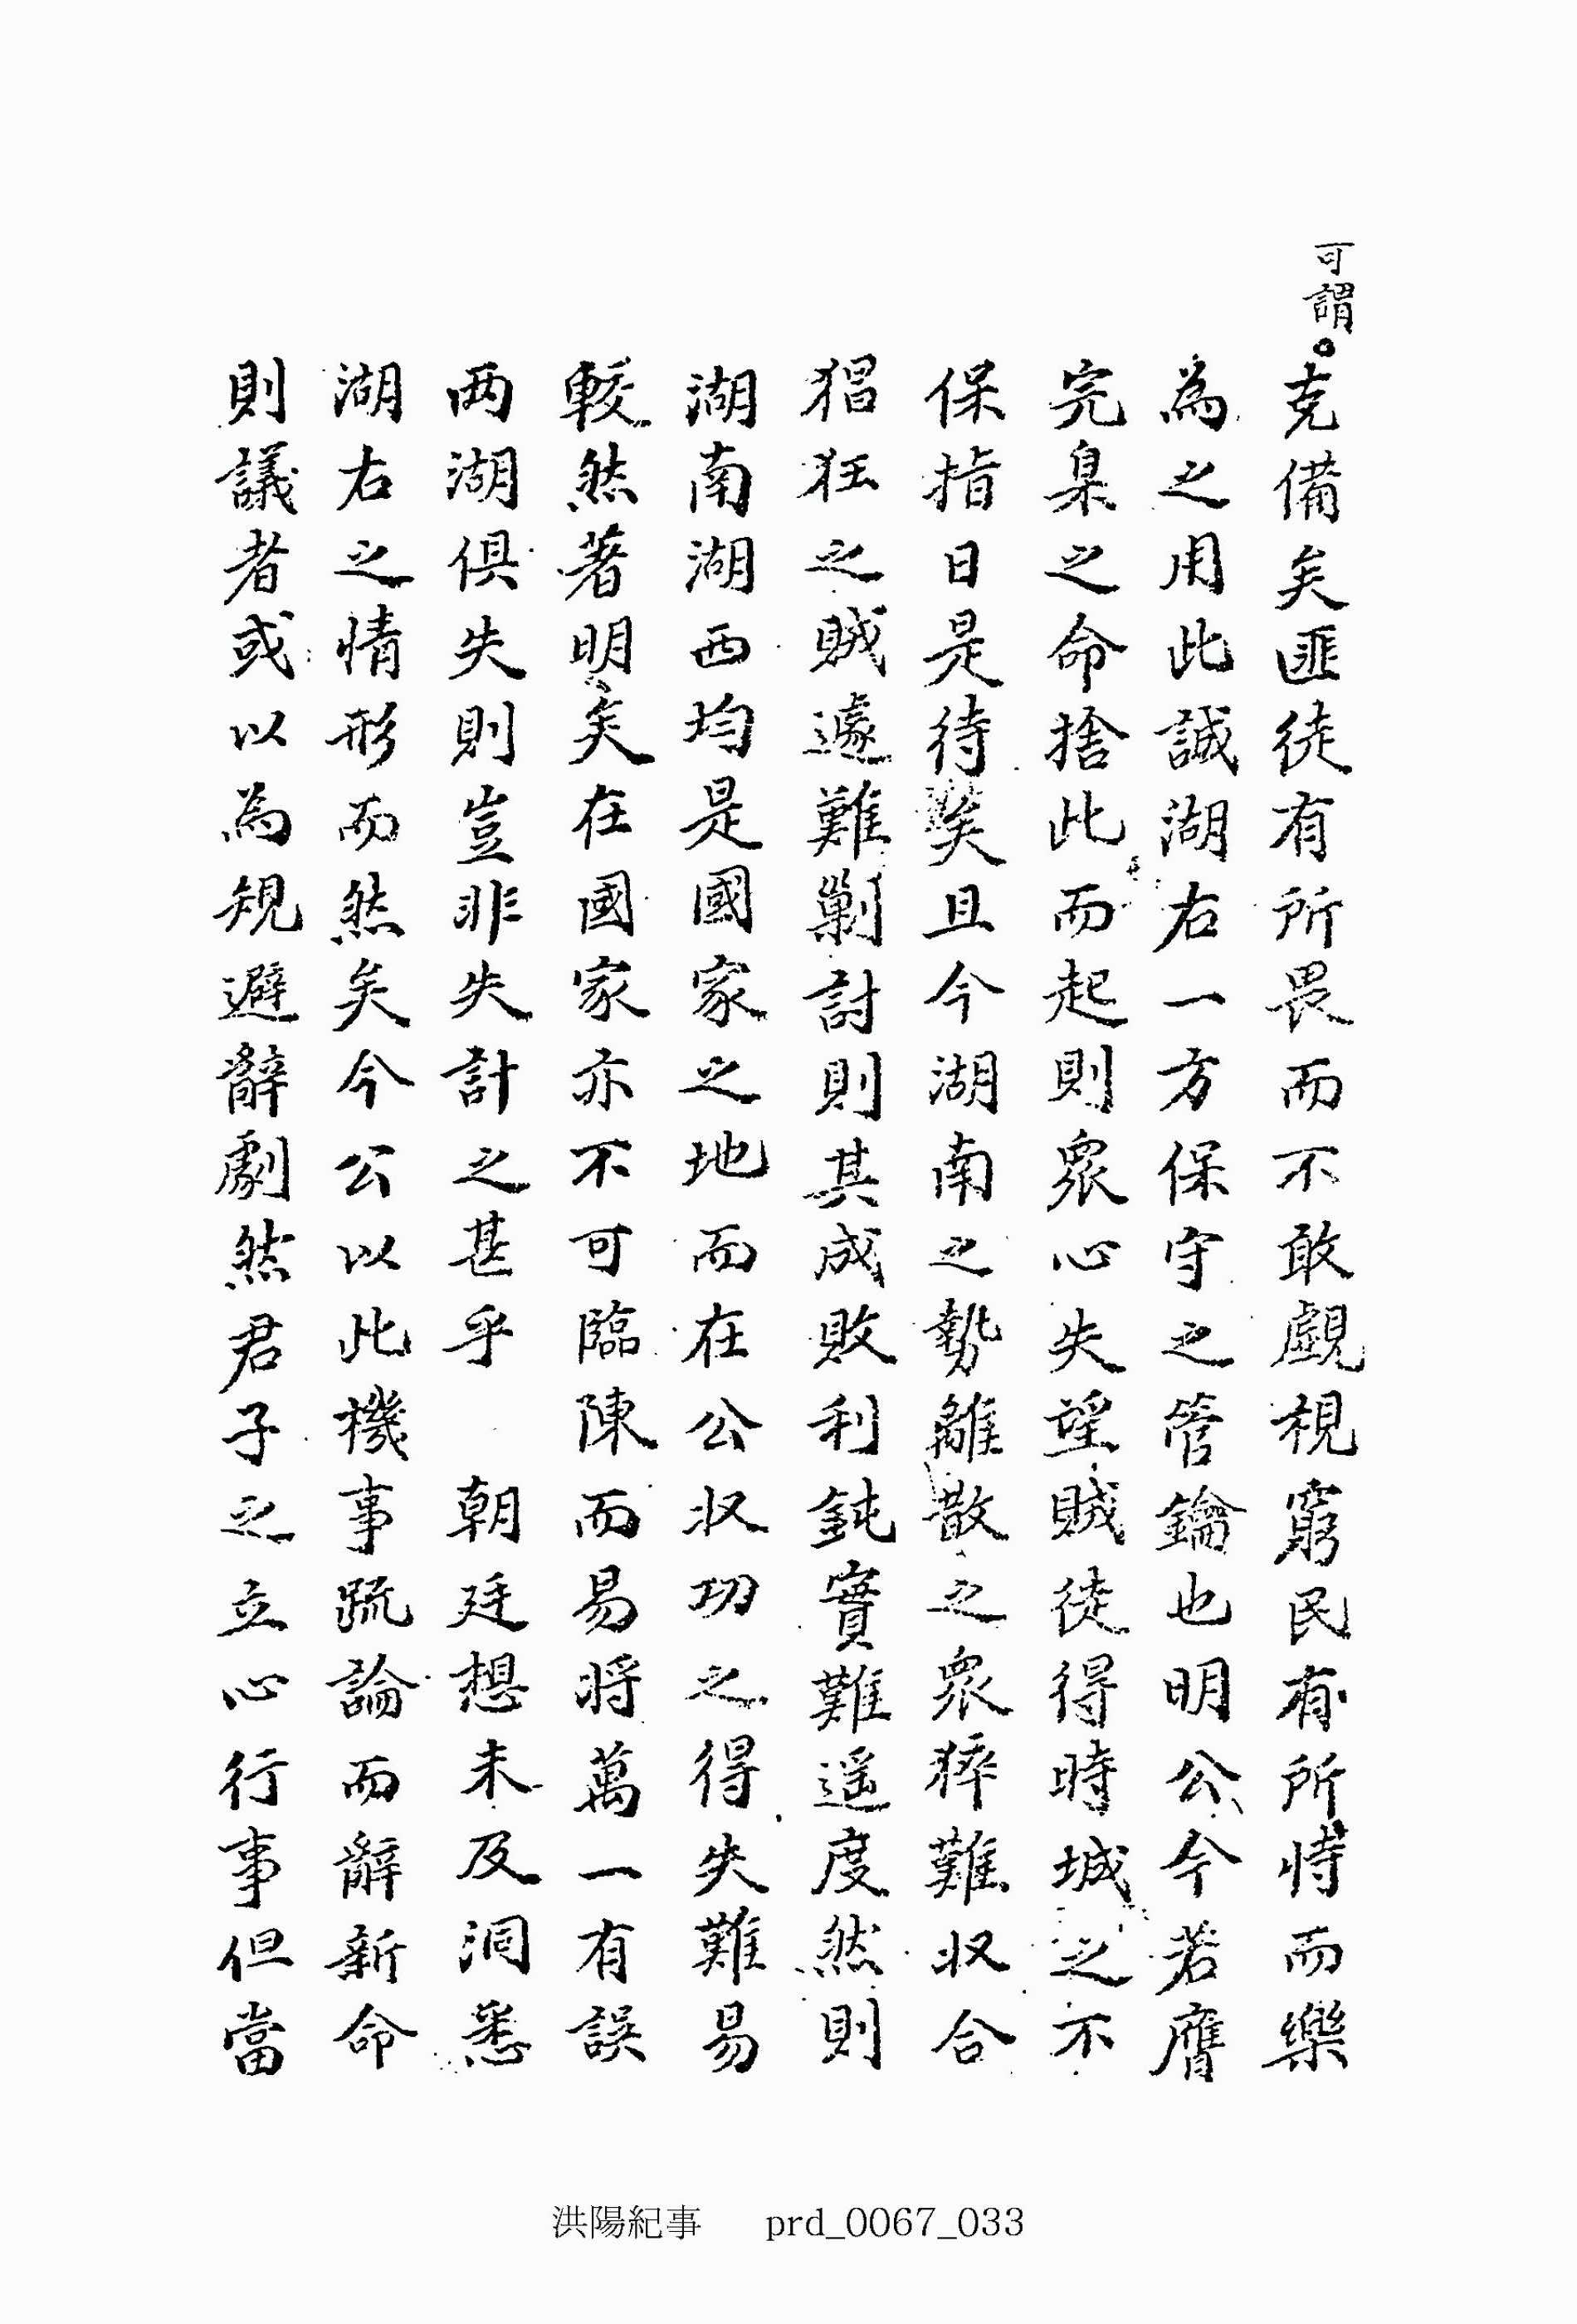 可謂。
克備矣匪徒有所畏而不敢覷視窮民有所恃而樂
為之用此誠湖右一方保守之管鑰也明公今若膺
完臬之命捨此而起則衆心失望賊徒得時城之不
保指日是待矣且今湖南之勢離散之衆猝難収合
猖狂之賊遽難剿討則其成敗利鈍實難遥度然則
湖南湖西均是國家之地而在公収功之得失難易
較然著明矣在國家亦不可臨陳而易將萬一有誤
两湖俱失則豈非失計之甚乎　朝廷想未及洞悉
湖右之情形而然矣今公以此機事疏論而辭新命
則議者或以為規避辭劇然君子之立心行事但當
洪陽紀事 prd_0067_033